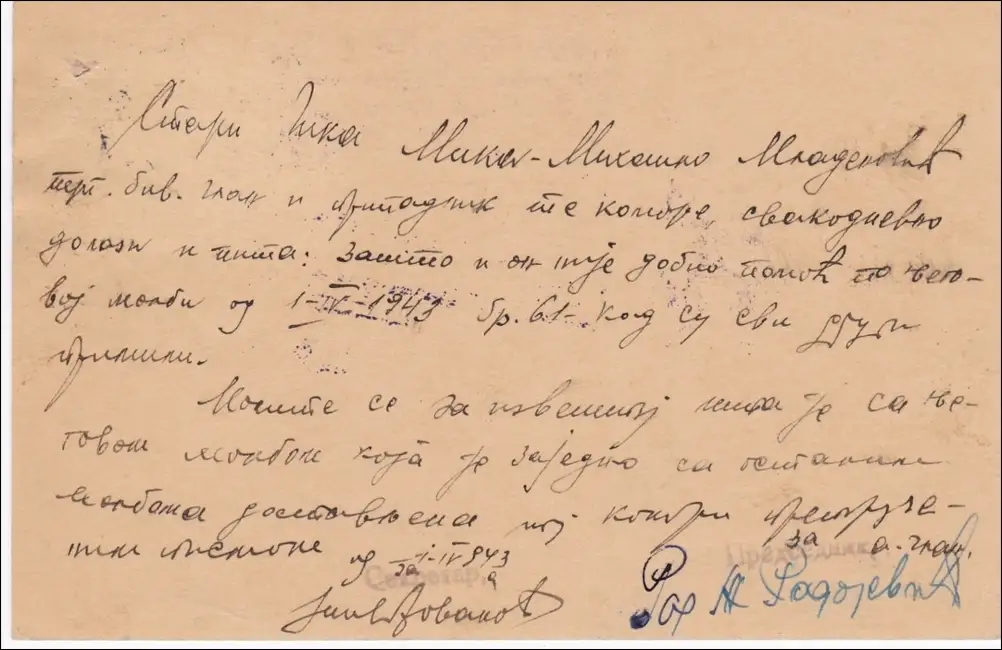 Стари Чика Мика-Михаило Младеновић
бив. члан и припадник те коморе, свакодневно
долази и пита: зашто и он није добио помоћ по њего-
вој молби од 1-IV-1943 бр. 61- кад су сви други
примили.
Молите се за извештај шта је са ње-
говом молбом која је заједно са осталим
молбама достављена тој комори препоруче-
ним писмом од 1-IV 943
за за
Секретар, Председник
Јовановић Радојевић